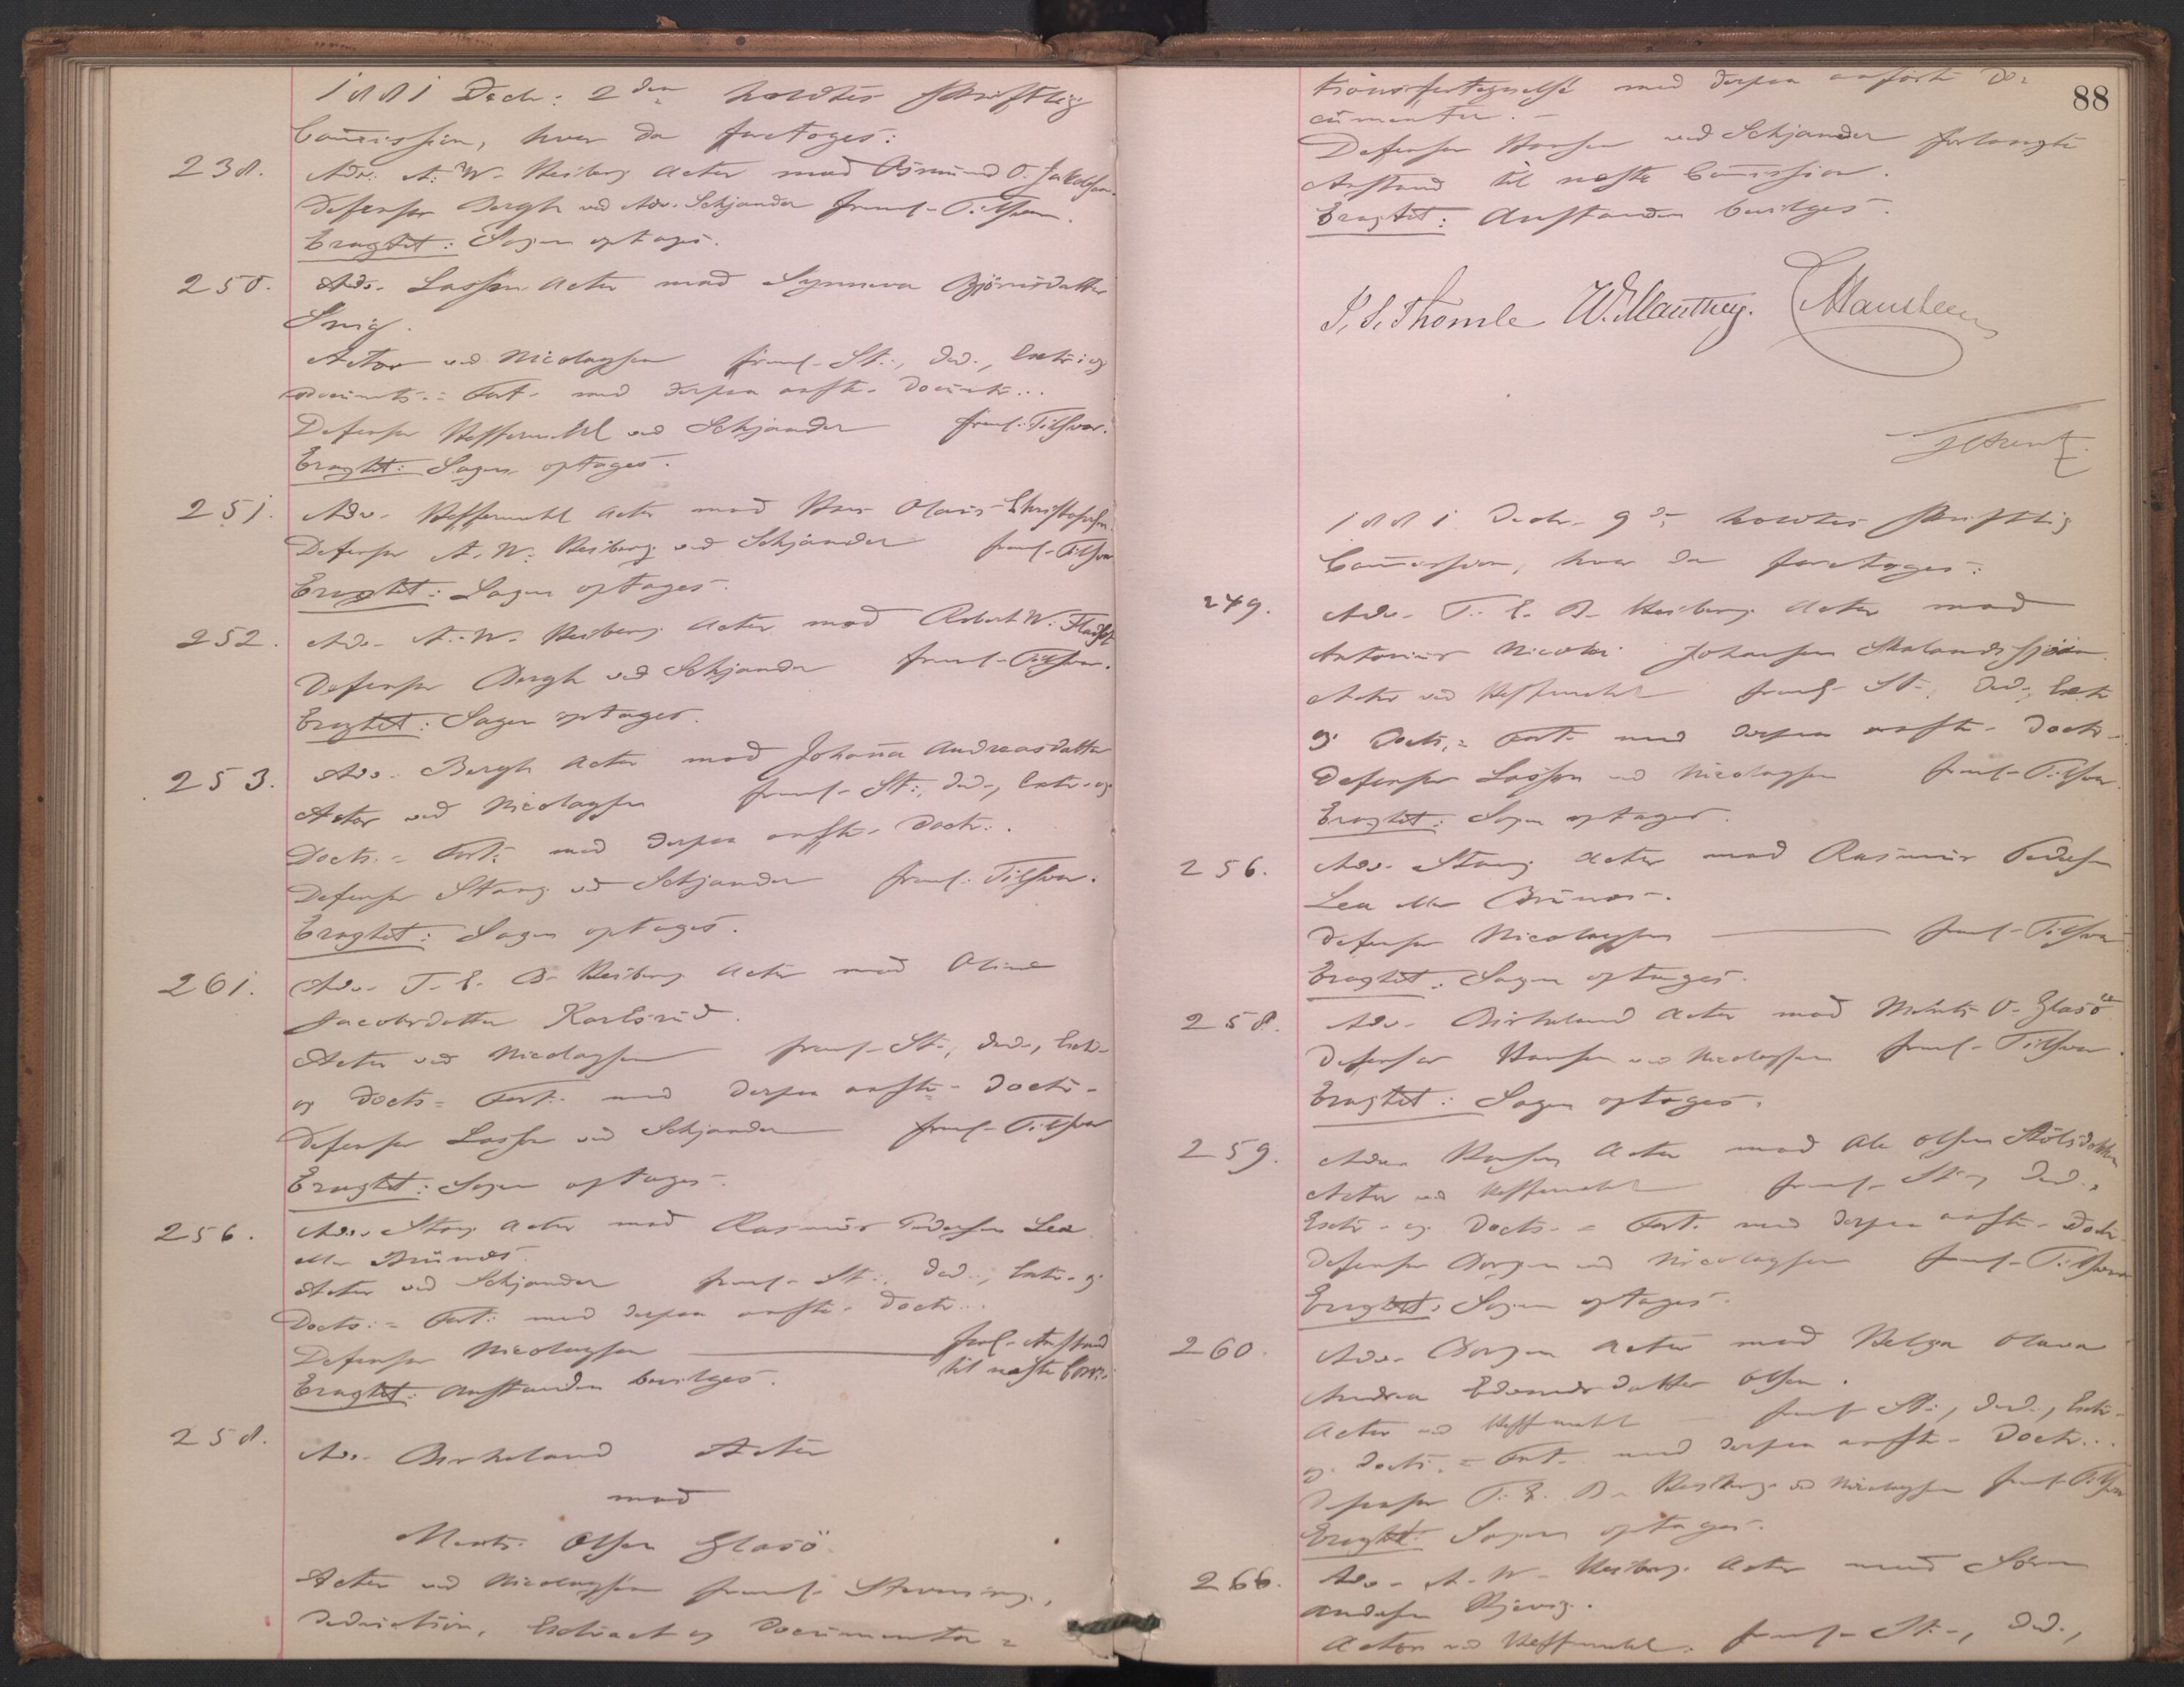 1881 Decbr: 2den holdtes skriftlig
Commission, hvor da foretoges:
238. Adv. A. W. Heiberg Actor mod Osmund O. Jakobsen.
Defensor Bergh ved Adv. Schjander freml. Tilsvar.
Eragtet: Sagen optages.
250. Adv. Lasson Actor mod Synneva Bjørnsdatter
Snig.
Actor ved Nicolaysen freml. St., Ded., Extr. og
Documts. = Fort. med derpaa anfte. Documtr..
Defensor Heffermehl ved Schjander freml. Tilsvar.
Eragtet: Sagen optages.
251. Adv. Heffermehl Actor mod Hans Olaus Christophersen.
Defensor A. W. Heiberg ved Schjander freml. Tilsvar
Eragtet: Sagen optages.
252. Adv. A. W. Heiberg Actor mod Robert W.
Defensor Bergh ved Schjander freml. Tilsvar.
Eragtet: Sagen optages.
253. Adv. Bergh Actor mod Johanna Andreasdatter
Actor ved Nicolaysen freml. St., Ded., Extr. og
Docts. = Fort. med derpaa anfte. Doctr..
Defensor Stang ved Schjander freml. Tilsvar.
Eragtet: Sagen optages.
261. Adv. T. E. B. Heiberg Actor mod Oline
Jacobsdatter Karlsrud.
Actor ved Nicolaysen freml. St., Ded., Extr.
og Docts. = Fort. med derpaa anfte. Doctr.
Defensor Lasson ved Schjander freml. Tilsvar
Eragtet: Sagen optages.
256. Adv. Stang Actor mod Rasmus Pedersen Lea
ell. Brunes.
Actor ved Schjander freml. St., Ded., Extr. og
Docts. = Fort. med derpaa anfte. Doctr..
Defensor Nicolaysen forl. Anstand
til næste Com.:
Eragtet: Anstanden bevilges.
258. Adv. Birkeland Actor
mod
Ments Olsen Glasö
Actor ved Nicolaysen freml. Stevning,
Deduction, Extract og Documenta=
88
tionsfortegnelse med derpaa anførte Do=
cumenter. —
Defensor Hansen ved Schjander forlangte
Anstand til næste Commission.
Eragtet: Anstanden bevilges.
S. S. Thomle W. Manthey.
1881 Decbr. 9de holdtes skriftlig
Commission, hvor da foretoges:
249. Adv. T. E. B. Heiberg Actor mod
Antonius Nicolai Johansen Skalandssjøen.
Actor ved Heffermehl freml. St., Ded., Extr
og Docts. = Fort. med derpaa anfte. Doctr.
Defensor Lasson ved Nicolaysen freml. Tilsvar.
Eragtet: Sagen optages.
256. Adv. Stang Actor mod Rasmus Pedersen
Lea ell. Brunes.
Defensor Nicolaysen freml. Tilsvar
Eragtet: Sagen optages.
258. Adv. Birkeland Actor mod Ments O. Glasö
Defensor Hansen ved Nicolaysen freml. Tilsvar.
Eragtet: Sagen optages.
259. Adv. Hansen Actor mod Ole Olsen Stölsdokken
Actor ved Heffermehl freml. St., Ded.,
Extr. og Docts. = Fort. med derpaa anfte. Doctr
Defensor Dorgen ved Nicolaysen freml. Tilsvar
Eragtet: Sagen optages.
260. Adv. Dorgen Actor mod Helga Olava
Andrea Edvardsdatter Olsen.
Actor ved Heffermehl freml. St., Ded., Extr.
og Docts. = Fort. med derpaa anfte. Doctr..
Defensor T. E. B. Heiberg ved Nicolaysen freml. Tilsvar
Eragtet: Sagen optages.
266. Adv. A. W. Heiberg Actor mod Søren
Andersen
Actor ved Heffermehl. freml. St., Ded.,